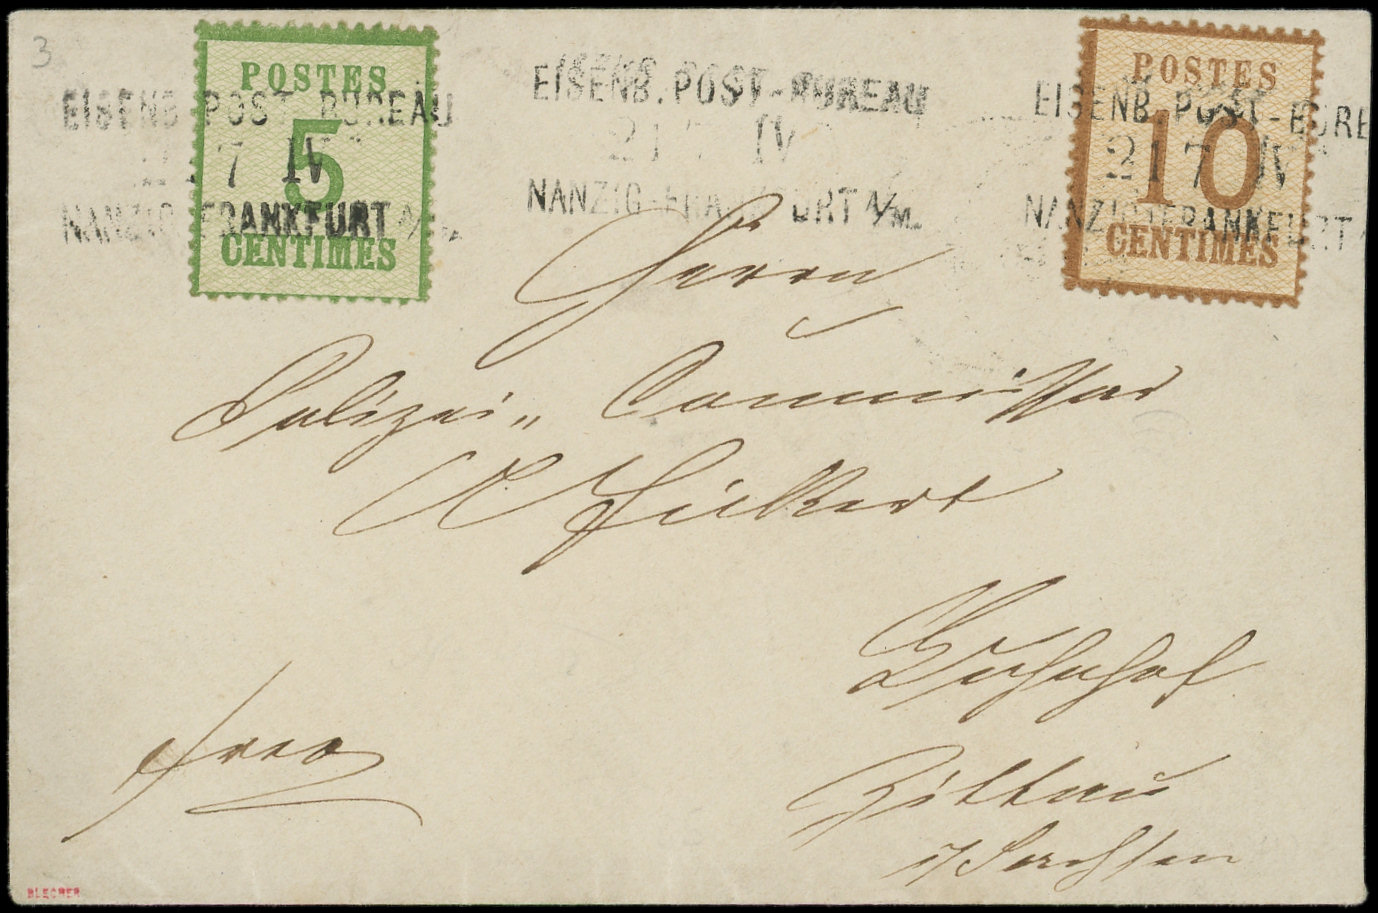 3
POSTES
5
CENTIMES
EISENB. POST-BUREAU
21 7 IV
NANZIG-FRANKFURT A/M.
EISENB. POST-BUREAU
21 IV
NANZIG-FRANKFURT A/M.
POSTES
10
CENTIMES
EISENB. POST-BURE
21 7 IV
NANZIG-FRANKFURT
Herrn
Polizei- Commissar
Bahnhof
Zittau
i/ Sachsen
frco
BLECHER